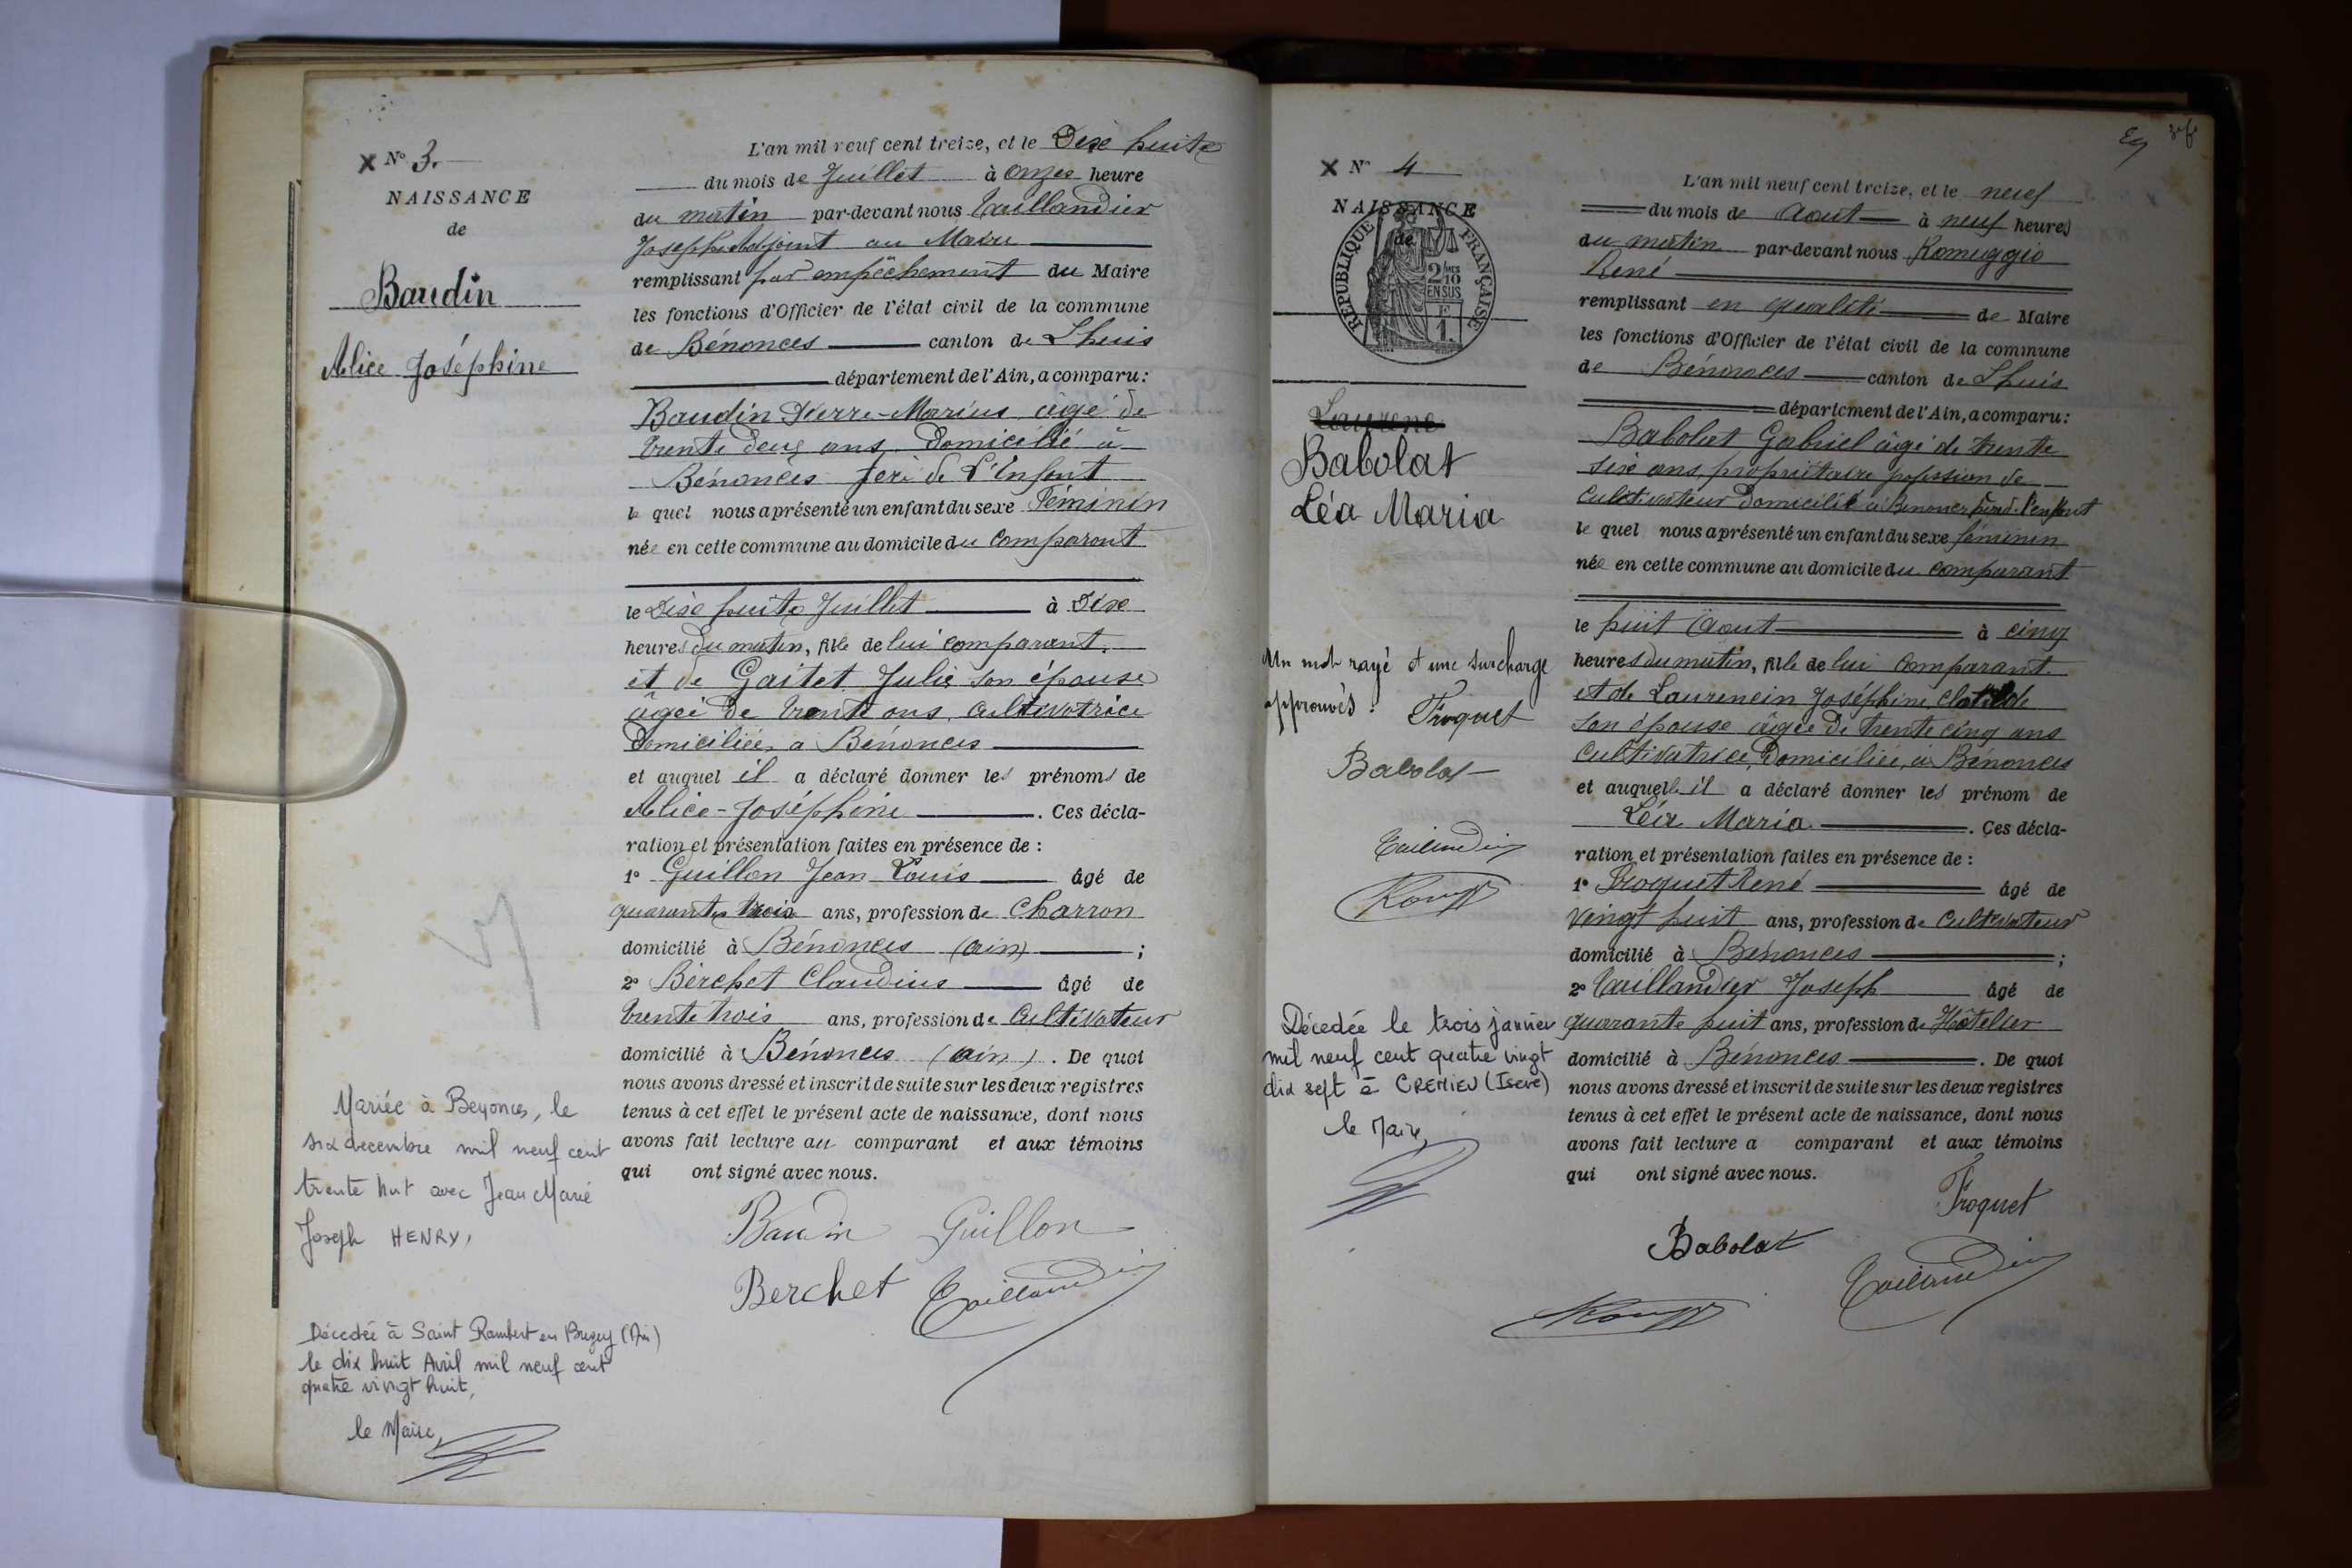 N° 3.
NAISSANCE
de
Baudin
Alice Joséphine
Mariée à Beyonces, le
six decembre mil neuf cent
trente huit avec Jean Marie
Joseph HENRY,
Décédée à Saint Rambert en Bugey (Ain)
le dix huit Avril mil neuf cent
quatre vingt huit,
le Maire,
L'an mil neuf cent treize, et le Dixe huite
du mois de Juillet à onzes heure
du matin par-devant nous Taillandier
Joseph Adjoint au Maire
remplissant par empêchement du Maire
les fonctions d'Officier de l'état civil de la commune
de Bénonces canton de Lhuis
département de l'Ain, a comparu :
Baudin Pierre-Marius âgé de
trente deux ans Domicilié à
Bénonces père de L'Enfant
le quel nous a présenté un enfant du sexe Féminin
née en cette commune au domicile du Comparant
le Dixe huite Juillet à Dixe
heures du matin, fille de lui comparant.
et de Gaitet Julie son épouse
âgée De trente ans, cultivatrice
Domiciliée, a Bénonces
et auquel il a déclaré donner les prénoms de
Alice-Joséphine . Ces décla-
ration et présentation faites en présence de :
1° Guillon Jean Louis âgé de
quarante trois ans, profession de Charron
domicilié à Bénonces (ain) ;
2° Berchet Claudius âgé de
trente trois ans, profession de Cultivateur
domicilié à Bénonces (ain) . De quoi
nous avons dressé et inscrit de suite sur les deux registres
tenus à cet effet le présent acte de naissance, dont nous
avons fait lecture au comparant et aux témoins
qui ont signé avec nous.
Baudin Guillon
Berchet Taillandier
N° 4
NAISSANCE
de
RÉPUBLIQUE FRANÇAISE
2/10
EN SUS
F
1.
Babolat
Léa Maria
Un mot rayé et une surcharge
approuvés : Troquet
Babolat
Taillandier
Décedée le trois janvier
mil neuf cent quatre vingt
dix sept à CREMIEU (Isère)
le Maire,
L'an mil neuf cent treize, et le neuf
du mois de Aout à neuf heures
du matin par-devant nous Romuggio
René
remplissant en qualité de Maire
les fonctions d'Officier de l'état civil de la commune
de Bénonces canton de Lhuis
département de l'Ain, a comparu :
Babolat Gabriel âgé de trente
sixe ans, propriétaire profession de
Cultivateur Domicilié à Bénonces père de l'enfant
le quel nous a présenté un enfant du sexe féminin
née en cette commune au domicile du comparant
le huit Aout à cinq
heures du matin, fille de lui comparant.
et de Laurencin Joséphine, Clotilde
son épouse âgée De trente cinq ans
Cultivatrice, Domiciliée, à Bénonces
et auquelle il a déclaré donner les prénom de
Léa Maria . Ces décla-
ration et présentation faites en présence de :
1° Troquet René âgé de
vingt huit ans, profession de Cultivateur
domicilié à Bénonces ;
2° Taillandier Joseph âgé de
quarante huit ans, profession de Hôtelier
domicilié à Bénonces . De quoi
nous avons dressé et inscrit de suite sur les deux registres
tenus à cet effet le présent acte de naissance, dont nous
avons fait lecture a comparant et aux témoins
qui ont signé avec nous.
Troquet
Babolat
Taillandier